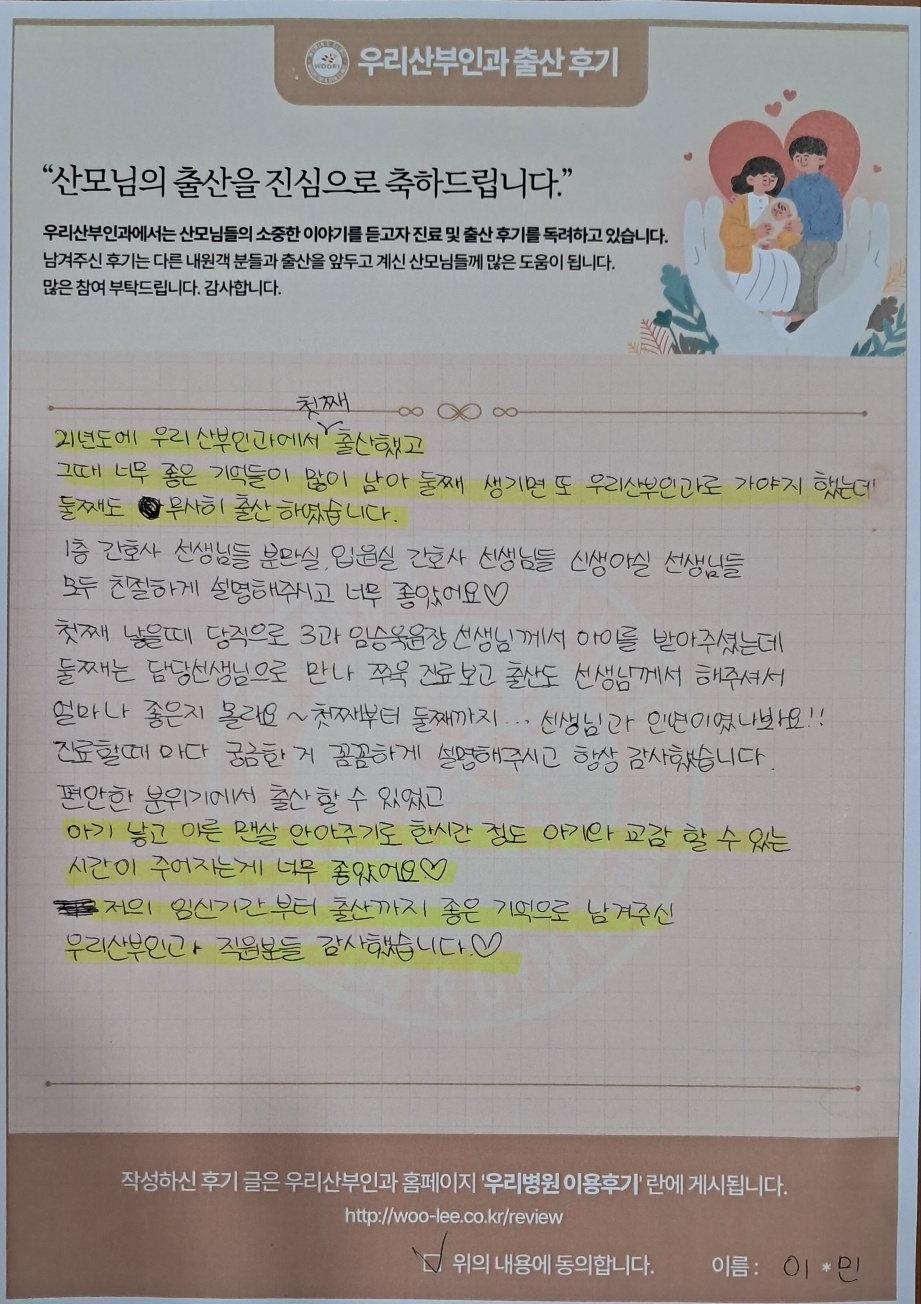 WOORI
우리산부인과 출산 후기
“산모님의 출산을 진심으로 축하드립니다.”
우리산부인과에서는 산모님들의 소중한 이야기를 듣고자 진료 및 출산 후기를 독려하고 있습니다.
남겨주신 후기는 다른 내원객 분들과 출산을 앞두고 계신 산모님들께 많은 도움이 됩니다.
많은 참여 부탁드립니다. 감사합니다.
첫째
21년도에 우리산부인과에서 출산했고
그때 너무 좋은 기억들이 많이 남아 둘째 생기면 또 우리산부인과로 가야지 했는데
둘째도 무사히 출산 하였습니다.
1층 간호사 선생님들 분만실, 입원실 간호사 선생님들 신생아실 선생님들
모두 친절하게 설명해주시고 너무 좋았어요♡
첫째 낳을때 당직으로 3과 임승욱원장 선생님께서 아이를 받아주셨는데
둘째는 담당선생님으로 만나 쭈욱 진료보고 출산도 선생님께서 해주셔서
얼마나 좋은지 몰라요~ 첫째부터 둘째까지... 선생님과 인연이였나봐요!!
진료할때 마다 궁금한 거 꼼꼼하게 설명해주시고 항상 감사했습니다.
편안한 분위기에서 출산 할 수 있었고
아기 낳고 이른 맨살 안아주기로 한시간 정도 아기와 교감 할 수 있는
시간이 주어지는게 너무 좋았어요♡
저의 임신기간부터 출산까지 좋은 기억으로 남겨주신
우리산부인과 직원분들 감사했습니다.♡
작성하신 후기 글은 우리산부인과 홈페이지 '우리병원 이용후기' 란에 게시됩니다.
http://woo-lee.co.kr/review
위의 내용에 동의합니다. 이름 : 이 * 민